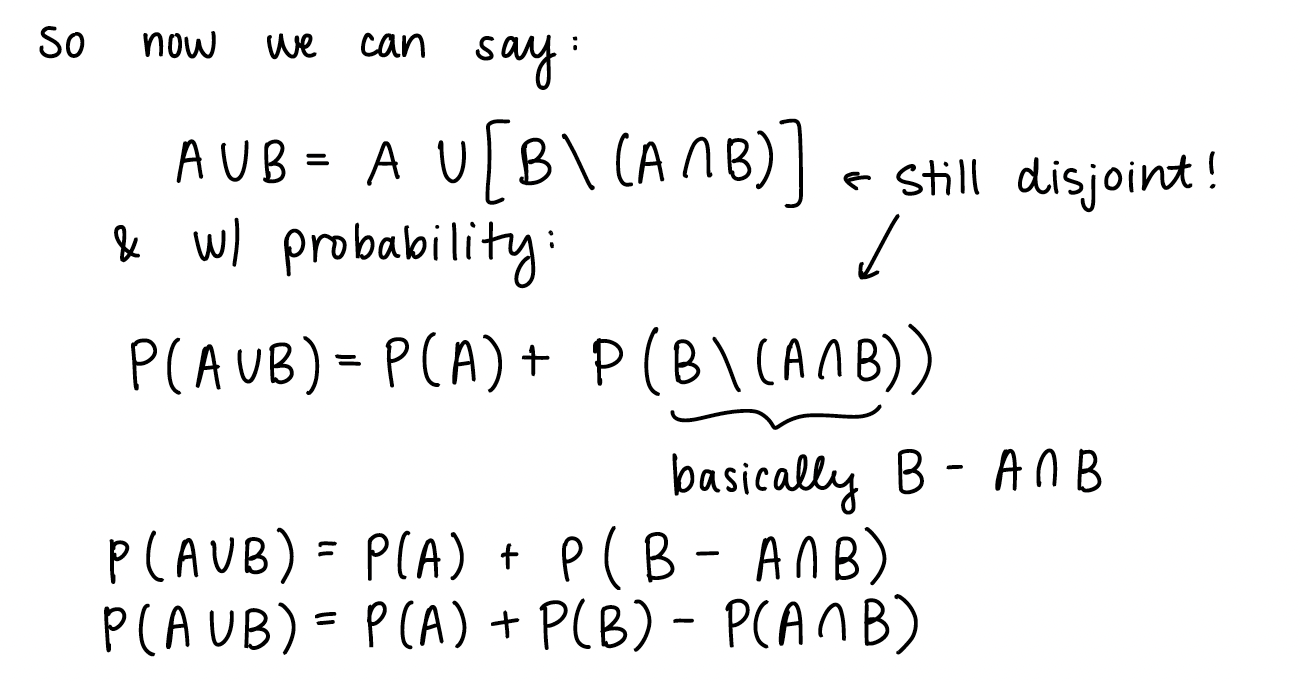 So now we can say:
A∪B = A ∪ [B \ (A∩B)] ← still disjoint!
& w/ probability:
P(A∪B) = P(A) + P(B \ (A∩B))
basically B - A∩B
P(A∪B) = P(A) + P(B - A∩B)
P(A∪B) = P(A) + P(B) - P(A∩B)